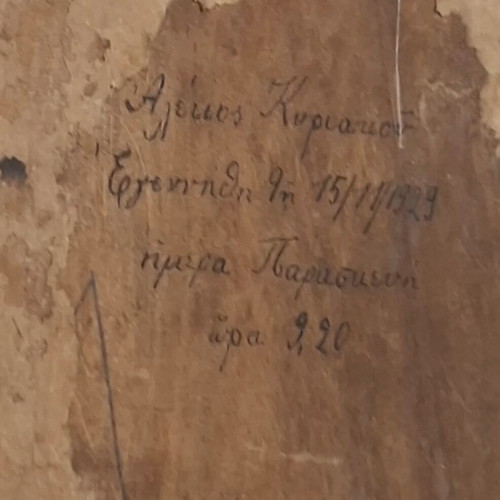 Αλέκος Κυριακού
Εγεννήθη τη 15/11/1929
ημέρα Παρασκευή
ὥρα 9,20